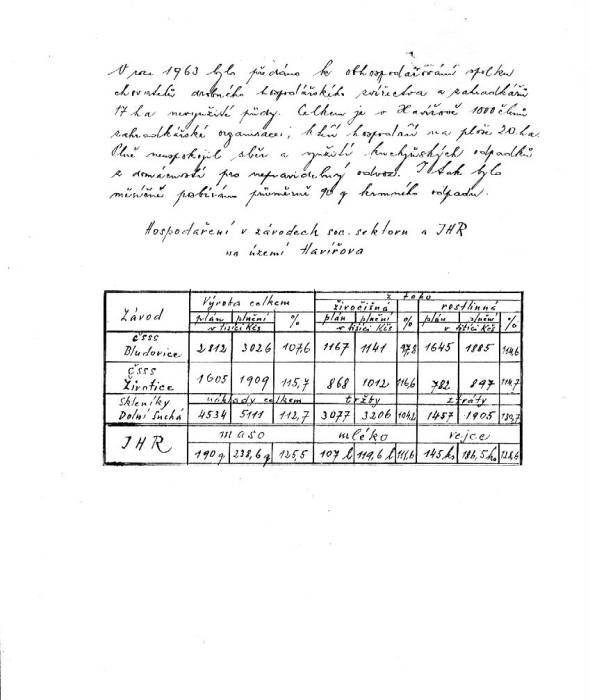 V roce 1963 bylo předáno k obhospodařování spolku
chovatelů drobného hospodářského zvířectva a zahrádkářů
17 ha nevyužité půdy. Celkem je v Havířově 1000 členů
zahrádkářské organisace, kteří hospodaří na ploše 20 ha.
Plně neuspokojil sběr a využití kuchyňských odpadků
z domácností pro nepravidelný odvoz. I tak bylo
měsíčně pobíráno průměrně 90 q krmného odpadu.
Hospodaření v závodech soc. sektoru a JHR
na území Havířova
Závod Výroba celkem z toho
živočišná rostlinná
plán plnění % plán plnění % plán plnění %
v tisíci Kčs v tisíci Kčs v tisíci Kčs
ČSSS
Bludovice 2812 3026 107,6 1167 1141 97,8 1645 1885 114,6
ČSSS
Životice 1605 1909 115,7 868 1012 116,6 782 897 114,7
Skleníky náklady celkem tržby ztráty
Dolní Suchá 4534 5111 112,7 3077 3206 104,2 1457 1905 130,7
JHR maso mléko vejce
190 q 238,6 q 125,5 107 l 119,6 l 111,6 145 ks 186,5 ks 128,6